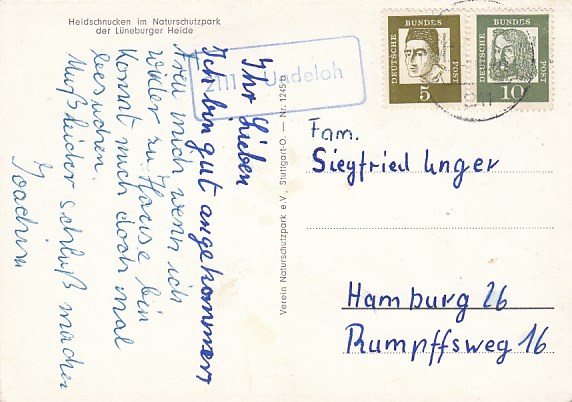 Heidschnucken im Naturschutzpark
der Lüneburger Heide
Ihr Lieben
Ich bin gut angekommen
freu mich wenn ich
wieder zu Hause bin
Kommt mich doch mal
besuchen.
Muß leider schluß machen
Joachim
Undeloh
Verein Naturschutzpark e.V., Stuttgart-O. — Nr. 1245
DEUTSCHE BUNDES POST
5
DEUTSCHE BUNDES POST
10
Fam.
Siegfried Unger
Hamburg 26
Rumpffsweg 16